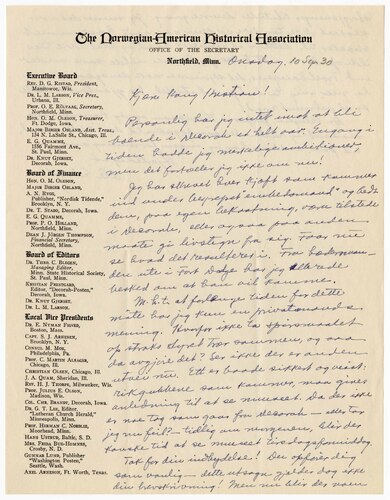 The Norwegian-American Historical Association
OFFICE OF THE SECRETARY
Northfield, Minn. Onsdag, 10 Sep. 30
Executive Board
REV. D. G. RISTAD, President,
Manitowoc, Wis.
DR. L. M. LARSON, Vice Pres.,
Urbana, Ill.
PROF. O. E. RÖLVAAG, Secretary,
Northfield, Minn.
HON. O. M. OLESON, Treasurer,
Ft. Dodge, Iowa.
MAJOR BIRGER OSLAND, Asst. Treas.,
134 N. LaSalle St., Chicago, Ill.
E. G. QUAMME,
1536 Fairmont Ave.,
St. Paul, Minn.
DR. KNUT GJERSET,
Decorah, Iowa.
Board of Finance
HON. O. M. OLESON,
MAJOR BIRGER OSLAND,
A. N. RYGG,
Publisher, "Nordisk Tidende,"
Brooklyn, N. Y.
DR. T. STABO, Decorah, Iowa.
E. G. QUAMME,
St. Paul, Minn.
PROF. P. O. HOLLAND,
Northfield, Minn.
DEAN J. JÖRGEN THOMPSON,
Financial Secretary,
Northfield, Minn.
Board of Editors
DR. THEO. C. BLEGEN,
Managing Editor,
Minn. State Historical Society,
St. Paul, Minn.
KRISTIAN PRESTGARD,
Editor, "Decorah-Posten,"
Decorah, Iowa.
DR. KNUT GJERSET,
DR. L. M. LARSON.
Local Vice Presidents
DR. E. NYMAN FIGVED,
Boston, Mass.
CAPT. S. J. ARNESEN,
Brooklyn, N. Y.
CONSUL M. MOE,
Philadelphia, Pa.
PROF. C. MARTIN ALSAGER,
Chicago, Ill.
CHRISTIAN OLSEN, Chicago, Ill.
J. A. QUAM, Sheridan, Ill.
REV. H. J. THORPE, Milwaukee, Wis.
PROF. JULIUS E. OLSON,
Madison, Wis.
COL. CHR. BRANDT, Decorah, Iowa.
DR. G. T. LEE, Editor,
"Lutheran Church Herald,"
Minneapolis, Minn.
PROF. HERMAN C. NORDLIE,
Moorhead, Minn.
HANS USTRUD, Baltic, S. D.
MRS. FRED BUE-HOMNES,
Crosby, N. D.
GUNNAR LUND, Publisher
"Washington Posten,"
Seattle, Wash.
AXEL ARNESON, Ft. Worth, Texas.
Kjære Pong Kristian!
Personlig har jeg intet imot at bli
boende i Decorah et helt aar. Engang i
tiden hadde jeg merkelige ambitioner,
men det fortæller jeg ikke om nu!
Jeg har allikevel hver
i Decorah, eller
maate gi livstegn fra sig. Faar nu
se hvad det resulterer i. Fra
ute i Fort Dodge har jeg allerede
besked om at han vil komme.
M. h. t. at forlænge tiden for dette
møte har jeg kun en privatmands
mening. Hvorfor ikke ta spørsmaalet
op straks styret har sammen, og saa
da avgjøre det? Ser ikke der er anden
utvei nu. Ett er baade sikkert og visst:
Rikgubbene som kommer, maa gives
anledning til at se museet. Da der ikke
er noe tog som gaar fra Decorah — eller tar
jeg nu feil? — tidlig om morgenen, blir det
kanske tid at se museet tirsdagsformiddag.
Tak for din indbydelse! Den opfører dig
din beskrivning! Men nu blir det noen